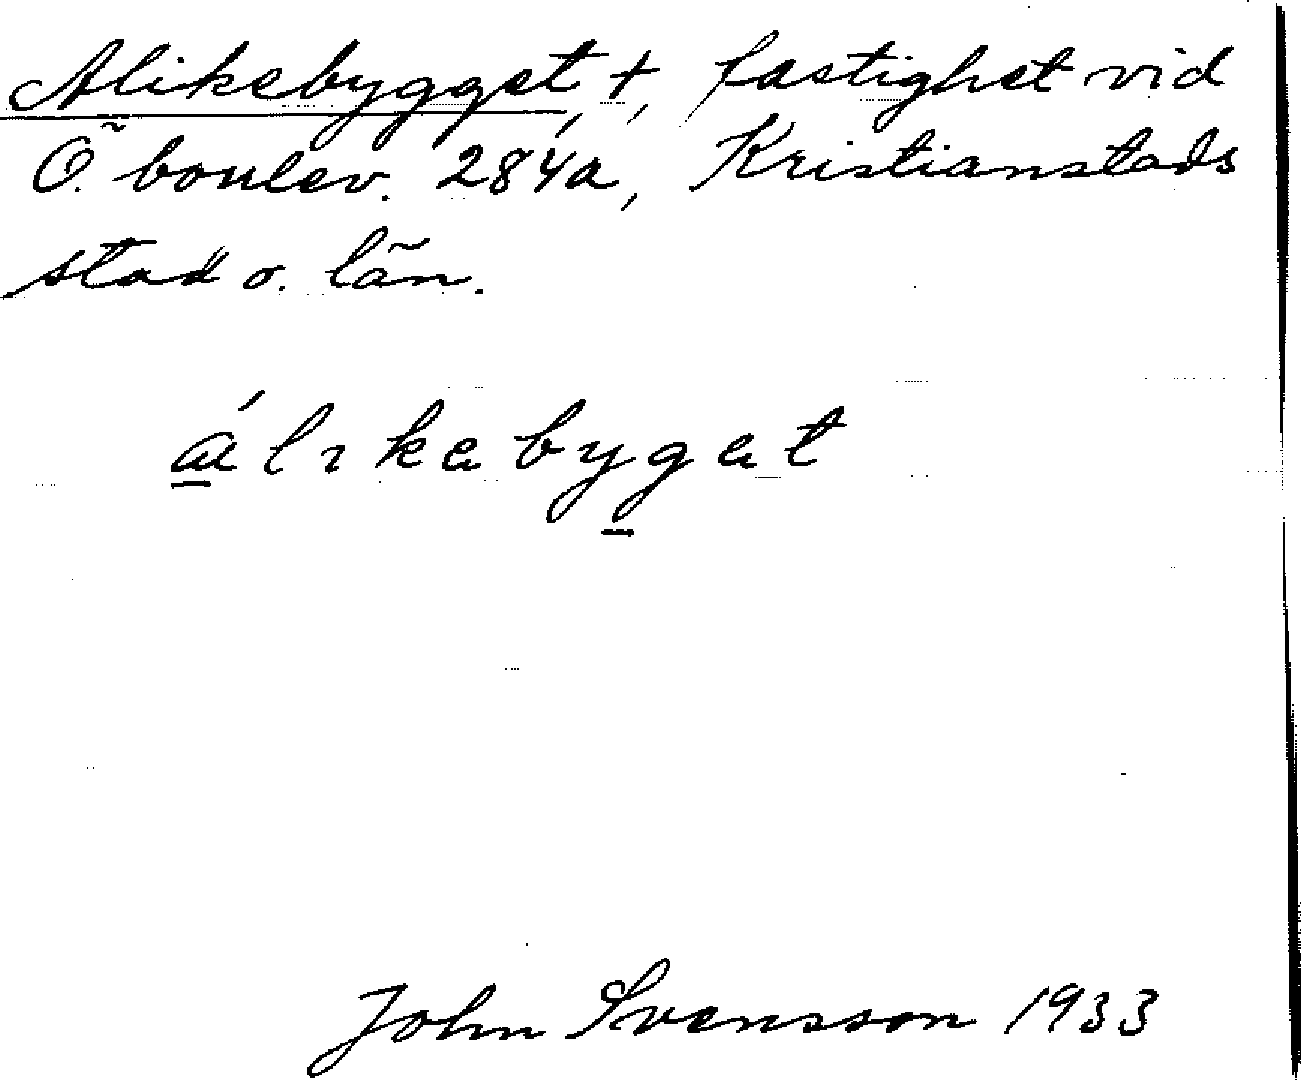 Alikebygget, †, fastighet vid
Ö. boulev. 284a, Kristianstads
stad o. län.
álıkebyget
John Svensson 1933